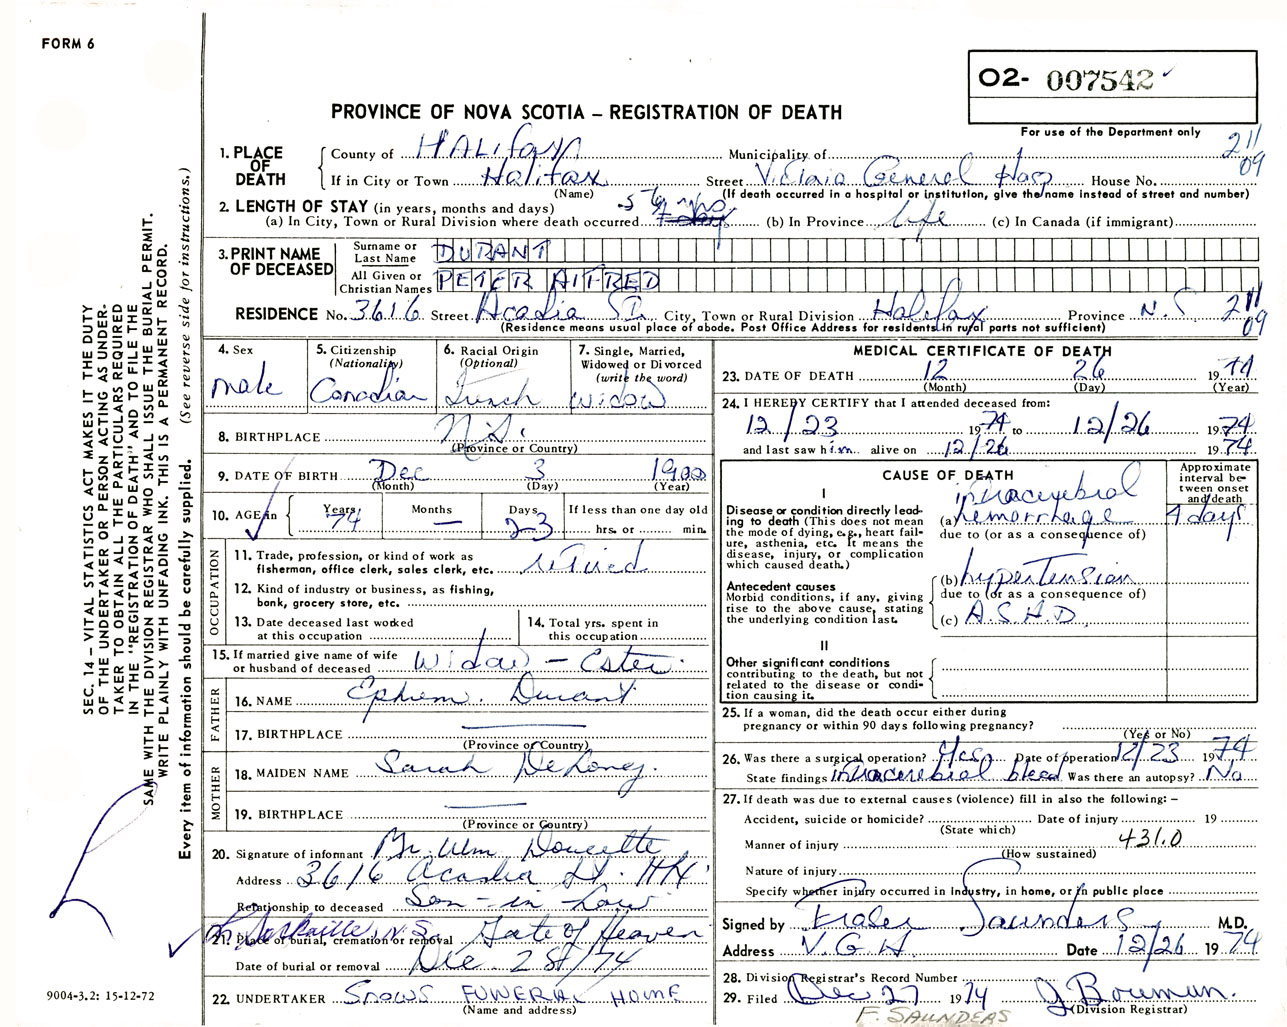 FORM 6
O2- 007542
PROVINCE OF NOVA SCOTIA – REGISTRATION OF DEATH
For use of the Department only
211
09
1. PLACE OF DEATH
County of Halifax Municipality of
If in City or Town Halifax Street Victoria General Hosp House No.
(Name) (If death occurred in a hospital or institution, give the name instead of street and number)
2. LENGTH OF STAY (in years, months and days)
(a) In City, Town or Rural Division where death occurred (b) In Province Life (c) In Canada (if immigrant)
3. PRINT NAME OF DECEASED
Surname or Last Name DURANT
All Given or Christian Names PETER ALFRED
RESIDENCE No. 3616 Street Acadia St. City, Town or Rural Division Halifax Province N.S. 211
09
(Residence means usual place of abode. Post Office Address for residents in rural parts not sufficient)
4. Sex
male
5. Citizenship
(Nationality)
Canadian
6. Racial Origin
(Optional)
French
7. Single, Married,
Widowed or Divorced
(write the word)
Widow
8. BIRTHPLACE N.S.
(Province or Country)
9. DATE OF BIRTH Dec 3 1900
(Month) (Day) (Year)
10. AGE in
Years Months Days If less than one day old
74 — 23 hrs. or min.
OCCUPATION
11. Trade, profession, or kind of work as
fisherman, office clerk, sales clerk, etc. retired
12. Kind of industry or business, as fishing,
bank, grocery store, etc.
13. Date deceased last worked
at this occupation
14. Total yrs. spent in
this occupation
15. If married give name of wife
or husband of deceased Widow – Ester.
FATHER
16. NAME Ephrem. Durant
17. BIRTHPLACE —
(Province or Country)
MOTHER
18. MAIDEN NAME Sarah DeLoney.
19. BIRTHPLACE —
(Province or Country)
20. Signature of informant Mr. Wm Doucette
Address 3616 Acadia St. Hfx
Relationship to deceased Son-in Law
21. Place of burial, cremation or removal Gate of Heaven
Lr. Sackville, N.S.
Date of burial or removal Dec 28t/74
22. UNDERTAKER SNOWS FUNERAL HOME
(Name and address)
MEDICAL CERTIFICATE OF DEATH
23. DATE OF DEATH 12 26 1974
(Month) (Day) (Year)
24. I HEREBY CERTIFY that I attended deceased from:
12/23 1974 to 12/26 1974
and last saw him alive on 12/26 1974
CAUSE OF DEATH
Approximate interval between onset and death
I
Disease or condition directly leading to death (This does not mean the mode of dying, e.g., heart failure, asthenia, etc. It means the disease, injury, or complication which caused death.)
intracerebral
(a) hemorrhage 4 days
due to (or as a consequence of)
Antecedent causes
Morbid conditions, if any, giving rise to the above cause, stating the underlying condition last.
(b) hypertension
due to (or as a consequence of)
(c) A.S.H.D.
II
Other significant conditions
contributing to the death, but not related to the disease or condition causing it.
25. If a woman, did the death occur either during
pregnancy or within 90 days following pregnancy?
(Yes or No)
26. Was there a surgical operation? Yes Date of operation 12/23 1974
State findings intracerebral bleed Was there an autopsy? No
27. If death was due to external causes (violence) fill in also the following: –
Accident, suicide or homicide? Date of injury 19
(State which)
Manner of injury 431.0
(How sustained)
Nature of injury
Specify whether injury occurred in Industry, in home, or in public place
Signed by Fraser Saunders M.D.
Address V.G.H. Date 12/26 1974
28. Division Registrar's Record Number
29. Filed Dec 27 1974 J Bowman.
(Division Registrar)
F. SAUNDERS
SEC. 14 – VITAL STATISTICS ACT MAKES IT THE DUTY
OF THE UNDERTAKER OR PERSON ACTING AS UNDER-
TAKER TO OBTAIN ALL THE PARTICULARS REQUIRED
IN THE "REGISTRATION OF DEATH" AND TO FILE THE
SAME WITH THE DIVISION REGISTRAR WHO SHALL ISSUE THE BURIAL PERMIT.
WRITE PLAINLY WITH UNFADING INK. THIS IS A PERMANENT RECORD.
Every item of information should be carefully supplied. (See reverse side for instructions.)
9004-3.2: 15-12-72